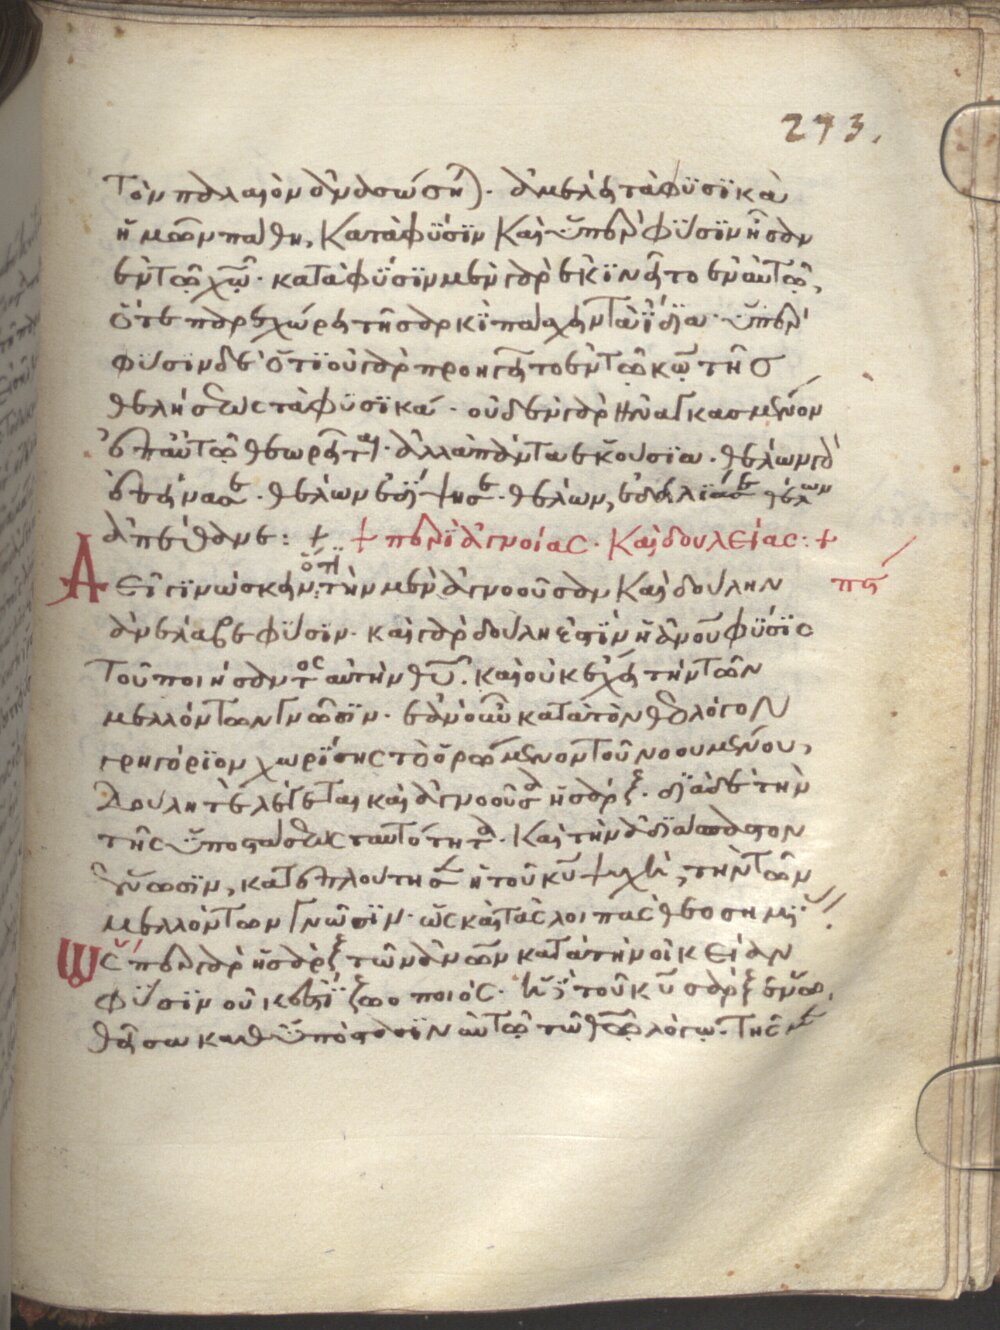 273.
τὸν παλαιὸν ἀνασώσηται. ἀμέλει τὰ φυσικὰ
ἡμῶν πάθη, κατὰ φύσιν καὶ ὑπὲρ φύσιν ἦσαν
ἐν τῶ χῶ. κατὰ φύσιν μὲν γὰρ ἐκινεῖτο ἐν αὐτῶ,
ὅτε παρεχώρει τῆ σαρκὶ παθεῖν τὰ ἴδια. ὑπὲρ
φύσιν δὲ ὅτι οὐ γὰρ προηγεῖτο ἐν τῶ κῶ τῆς
θελήσεως τὰ φυσικά. οὐδὲν γὰρ ἠναγκασμένον
ἐπ' αὐτῶ θεωρεῖται. ἀλλὰ πάντα ἑκούσια. θέλων γὰρ
ἐπείνασε. θέλων ἐδίψησε. θέλων, ἐδειλίασε θέλων
ἀπέθανε: + + περὶ ἀγνοίας. καὶ δουλείας: +
Δεῖ γινώσκειν, ὅτι τὴν μὲν ἀγνοοῦσαν καὶ δούλην πη
ἀνέλαβε φύσιν. καὶ γὰρ δούλη ἐστὶν ἡ ἀνου φύσις
τοῦ ποιήσαντος αὐτὴν θυ. καὶ οὐκ ἔχει τὴν τῶν
μελλόντων γνῶσιν. ἐὰν οὖν κατὰ τὸν θεολόγον
γρηγόριον χωρίσης τὸ ὁρώμενον τοῦ νοουμένου,
δούλη τὲ λέγεται καὶ ἀγνοοῦσα ἡ σάρξ. διὰ δὲ τὴν
τῆς ὑποστάσεως ταυτότητα. καὶ τὴν ἀδιάσπαστον
ἕνωσιν, κατεπλούτησεν ἡ τοῦ κυ ψυχὴ, τὴν τῶν
μελλόντων γνῶσιν. ὡς καὶ τὰς λοιπὰς θεοσημίας.
Ὥσπερ γὰρ ἡ σὰρξ τῶν ἀνων κατὰ τὴν οἰκείαν
φύσιν οὐκ ἔστι ζωοποιός. ἡ δὲ τοῦ κυ σὰρξ ἑνω
θεῖσα καθ' ὑπόστασιν αὐτῶ τῶ θεῶ λόγω. τῆς μὲν